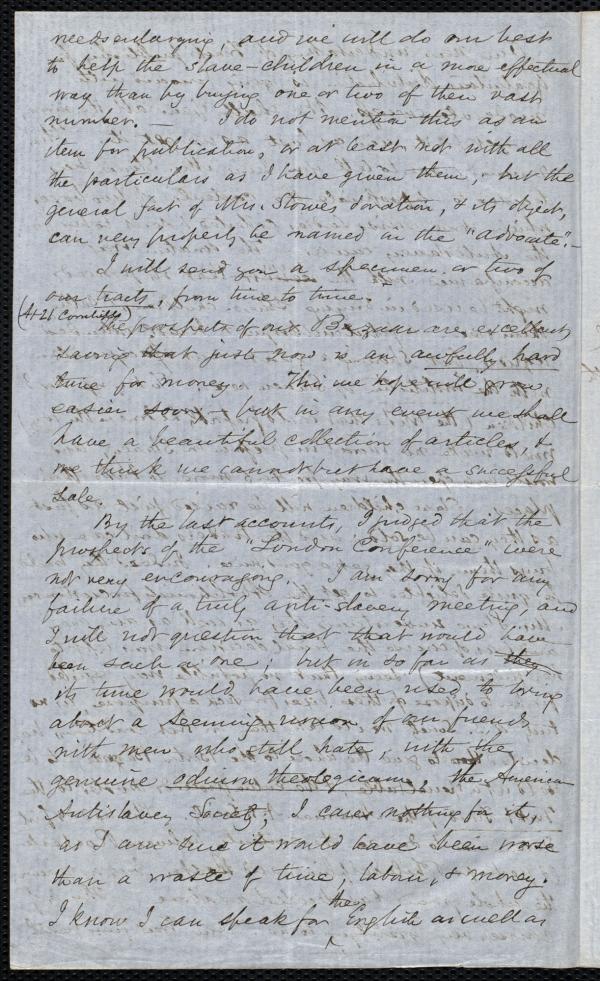 needs enlarging, and we will do our best
to help the slave-children in a more effectual
way than by buying one or two of their vast
number. — I do not mention this as an
item for publication, or at least not with all
the particulars as I have given them, but the
general fact of Mrs. Stowe's donation, & its object,
can very properly be named in the "Advocate". –
I will send you a specimen or two of
our tracts, from time to time. –
The prospects of our Bazaar are excellent,
saving that just now is an awfully hard
time for money. This we hope will grow
easier soon – but in any event we shall
have a beautiful collection of articles, &
we think we cannot but have a successful
sale.
By the last accounts, I judged that the
prospects of the "London Conference" were
not very encouraging. I am sorry for any
failure of a truly anti-slavery meeting, and
I will not question that that would have
been such a one; but in so far as they
its time would have been used, to bring
about a seeming union of our friends
with men who still hate, with the
genuine odium theologicum, the American
Antislavery Society, I care nothing for it,
as I am sure it would have been worse
than a waste of time, labour, & money.
I know I can speak for the English as well as